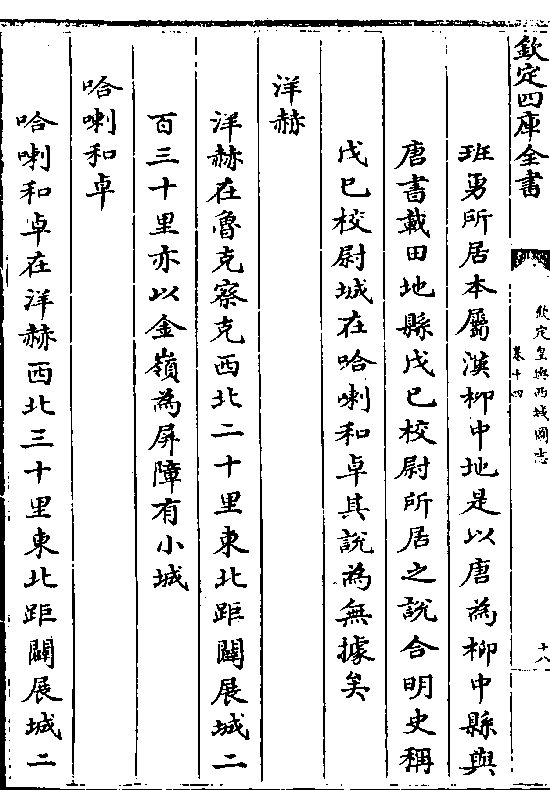 欽定四庫全書
欽定皇輿西域圖志
卷十四
十八
班勇所居本屬漢柳中地是以唐為柳中縣與
唐書載田地縣戊已校尉所居之說合明史稱
戊已校尉城在哈喇和卓其說為無據矣
洋赫
洋赫在魯克察克西北二十里東北距闢展城二
百三十里亦以金嶺為屏障有小城
哈喇和卓
哈喇和卓在洋赫西北三十里東北距闢展城二